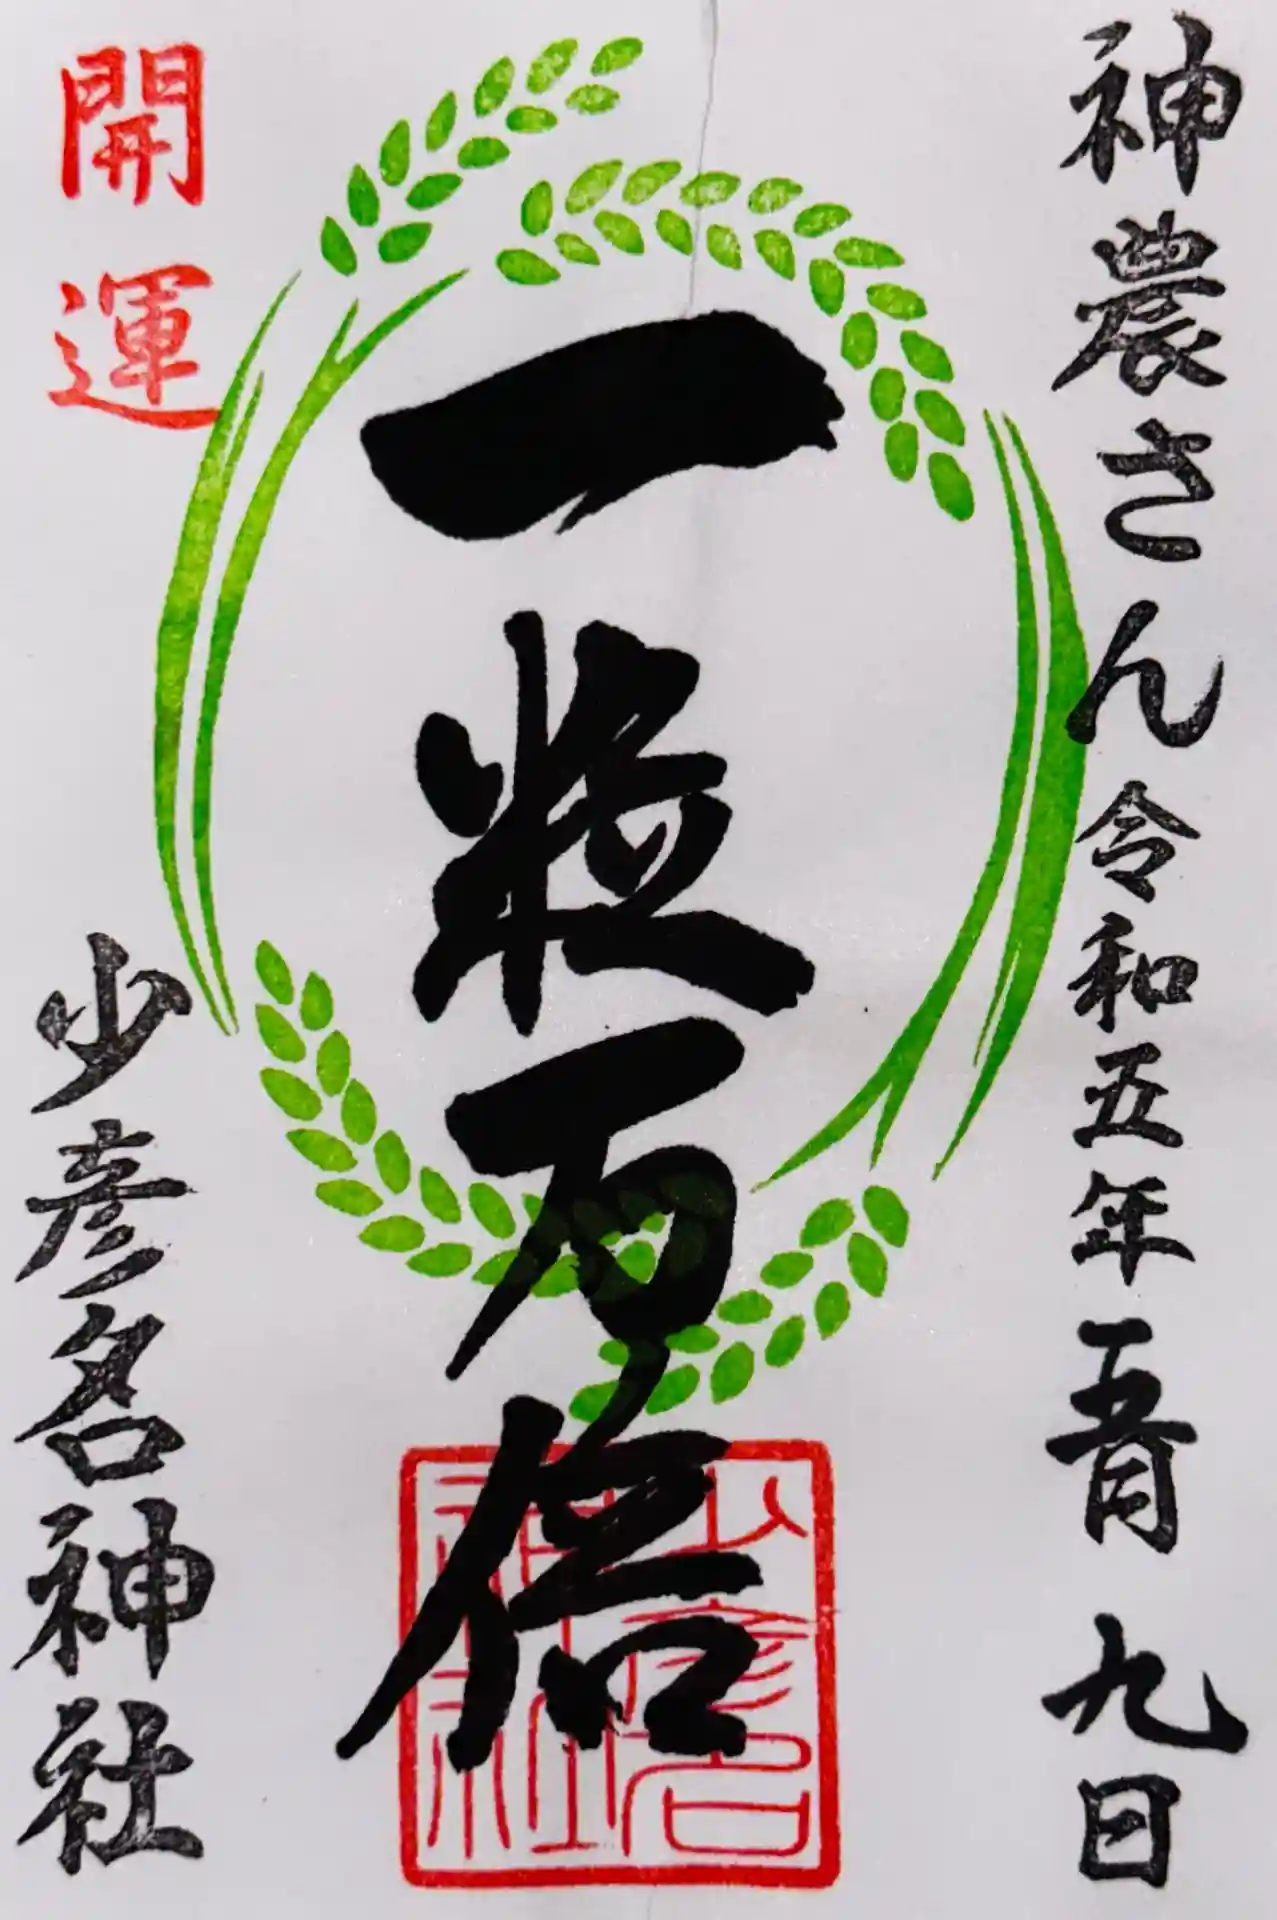 神農さん 令和五年 五月 九日
一粒万倍
開運
少彦名神社
少彦名
神社